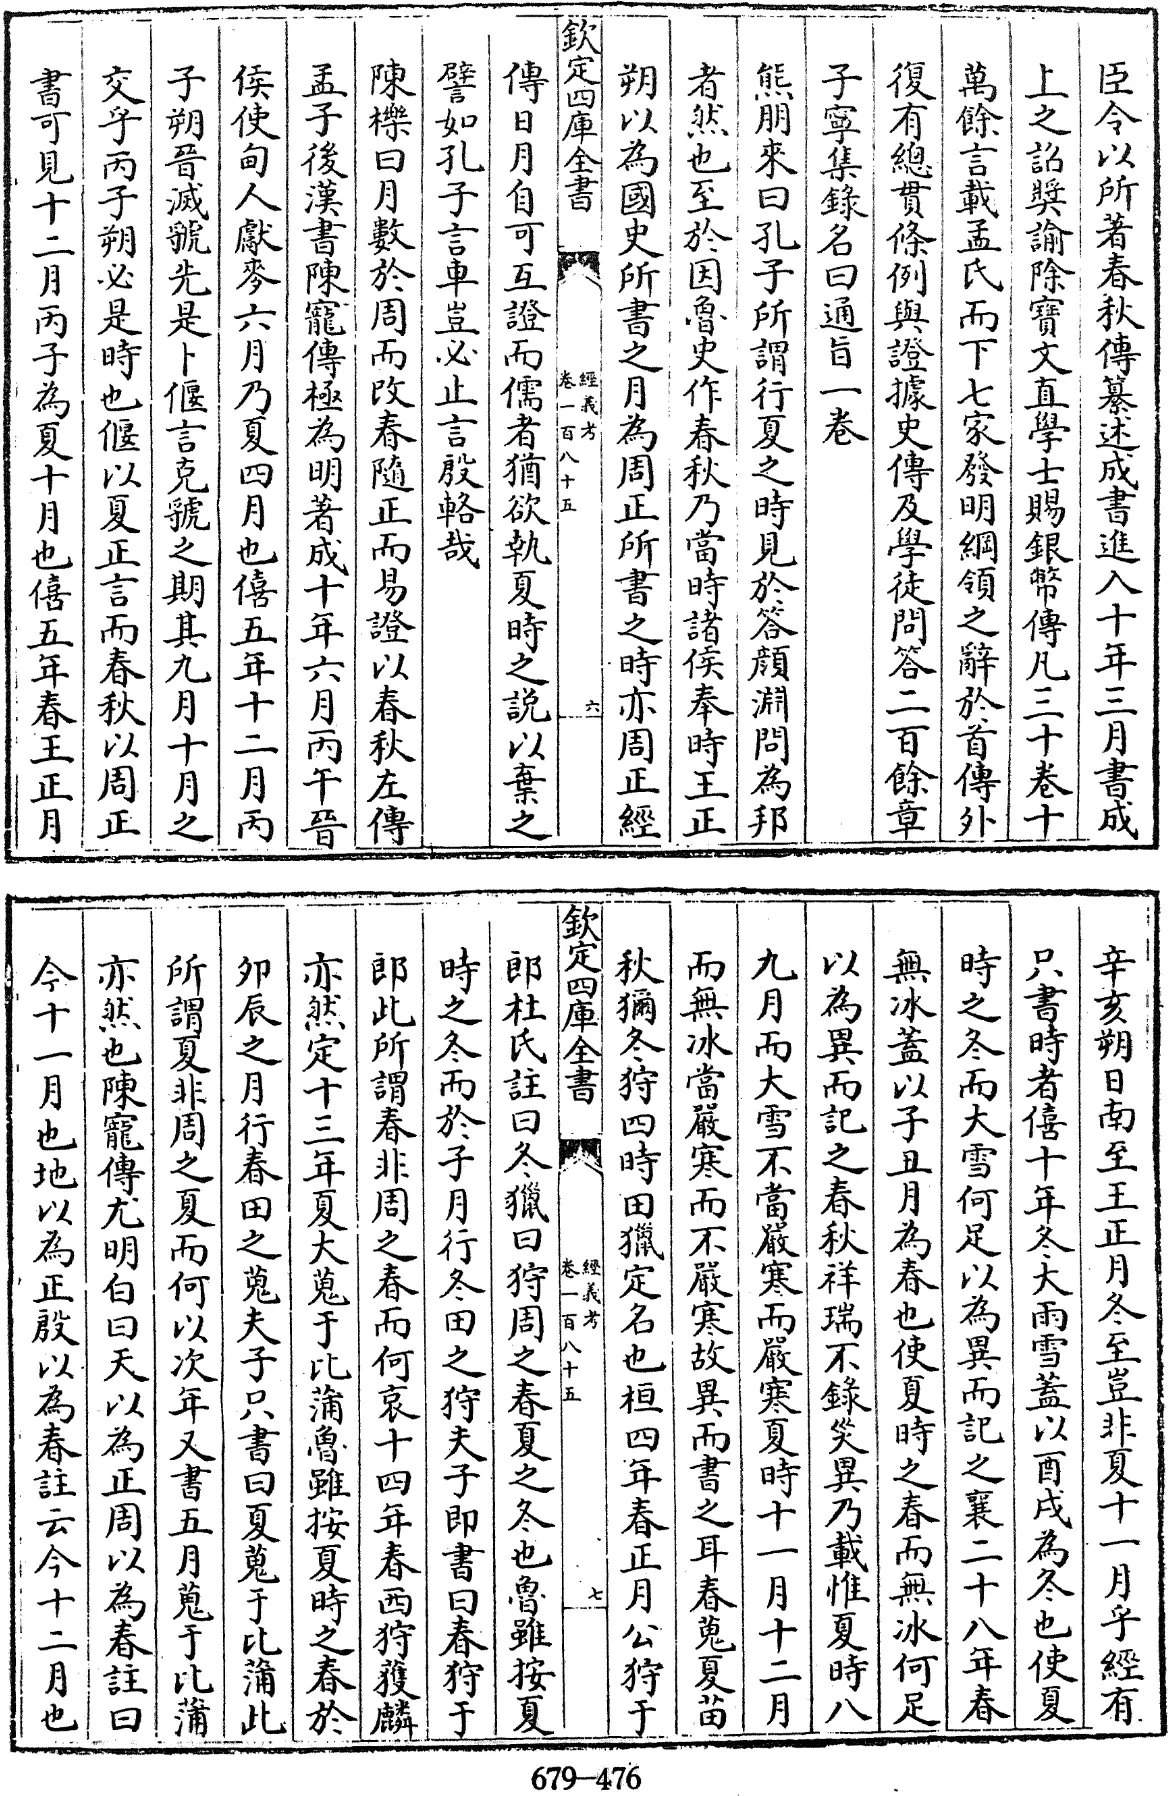 臣令以所著春秋傳纂述成書進入十年三月書成
上之詔奨諭除寶文直學士賜銀幣傳凡三十卷十
萬餘言載孟氏而下七家發明綱領之辭於首傳外
復有總貫條例與證據史傳及學徒問答二百餘章
子寧集錄名曰通旨一卷
熊朋來曰孔子所謂行夏之時見於答顔淵問為邦
者然也至於因魯史作春秋乃當時諸侯奉時王正
朔以為國史所書之月為周正所書之時亦周正經
欽定四庫全書
經義考
卷一百八十五
六
傳日月自可互證而儒者猶欲執夏時之説以棄之
譬如孔子言車豈必止言殷輅哉
陳櫟曰月數於周而改春隨正而易證以春秋左傳
孟子後漢書陳寵傳極為明著成十年六月丙午晉
侯使甸人獻麥六月乃夏四月也僖五年十二月丙
子朔晉滅虢先是卜偃言克虢之期其九月十月之
交乎丙子朔必是時也偃以夏正言而春秋以周正
書可見十二月丙子為夏十月也僖五年春王正月
辛亥朔日南至王正月冬至豈非夏十一月乎經有
只書時者僖十年冬大雨雪蓋以酉戌為冬也使夏
時之冬而大雪何足以為異而記之襄二十八年春
無冰蓋以子丑月為春也使夏時之春而無冰何足
以為異而記之春秋祥瑞不錄災異乃載惟夏時八
九月而大雪不當嚴寒而嚴寒夏時十一月十二月
而無冰當嚴寒而不嚴寒故異而書之耳春蒐夏苗
秋獮冬狩四時田獵定名也桓四年春正月公狩于
欽定四庫全書
經義考
卷一百八十五
七
郎杜氏註曰冬獵曰狩周之春夏之冬也魯雖按夏
時之冬而於子月行冬田之狩夫子即書曰春狩于
郎此所謂春非周之春而何哀十四年春西狩獲麟
亦然定十三年夏大蒐于比蒲魯雖按夏時之春於
卯辰之月行春田之蒐夫子只書曰夏蒐于比蒲此
所謂夏非周之夏而何以次年又書五月蒐于比蒲
亦然也陳寵傳尤明白曰天以為正周以為春註曰
今十一月也地以為正殷以為春註云今十二月也
679—476